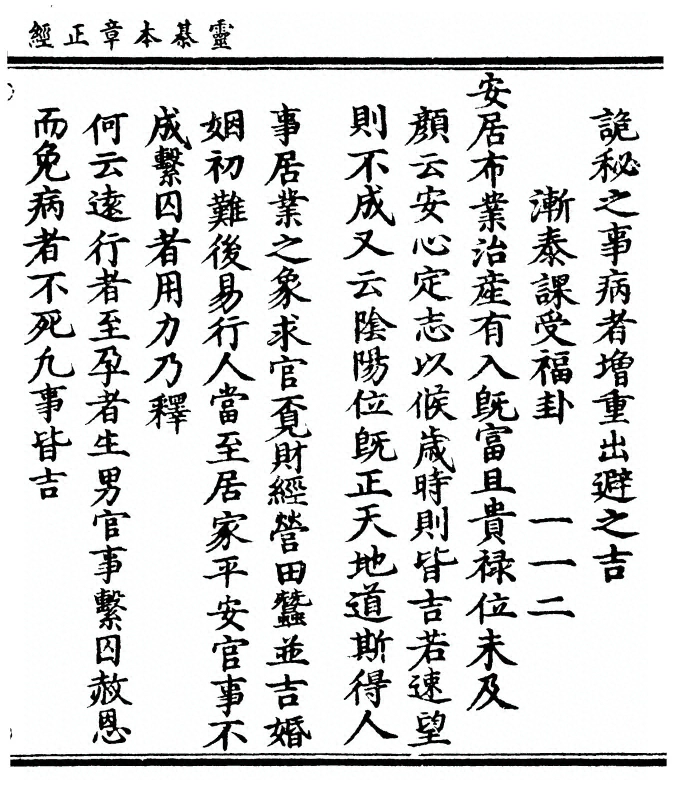 靈棊本章正經
詭秘之事病者增重出避之吉
漸泰課受福卦　一一二
安居布業治産有入既富且貴禄位未及
顔云安心定志以候歳時則皆吉若速望
則不成又云陰陽位既正天地道斯得人
事居業之象求官覔財經營田蠶並吉婚
姻初難後易行人當至居家平安官事不
成繫囚者用力乃釋
何云遠行者至孕者生男官事繫囚赦恩
而免病者不死九事皆吉